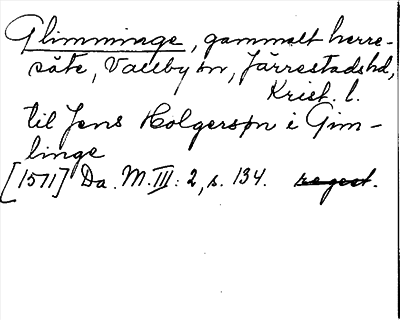 Glimminge, gammalt herre-
säte, Vallby sn, Järrestads hd,
Krist. l.
til Jens Holgerssøn i Glim-
linge
[1511] Da. M. III: 2, s. 134. regest.